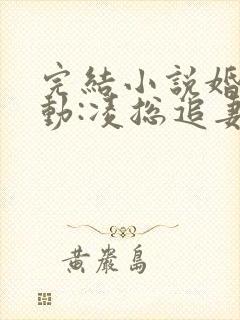 完結小說婚
動:凌總追妻
黃巖島